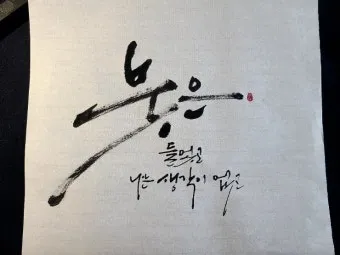 붓은
들었고
나는 생각이 없고